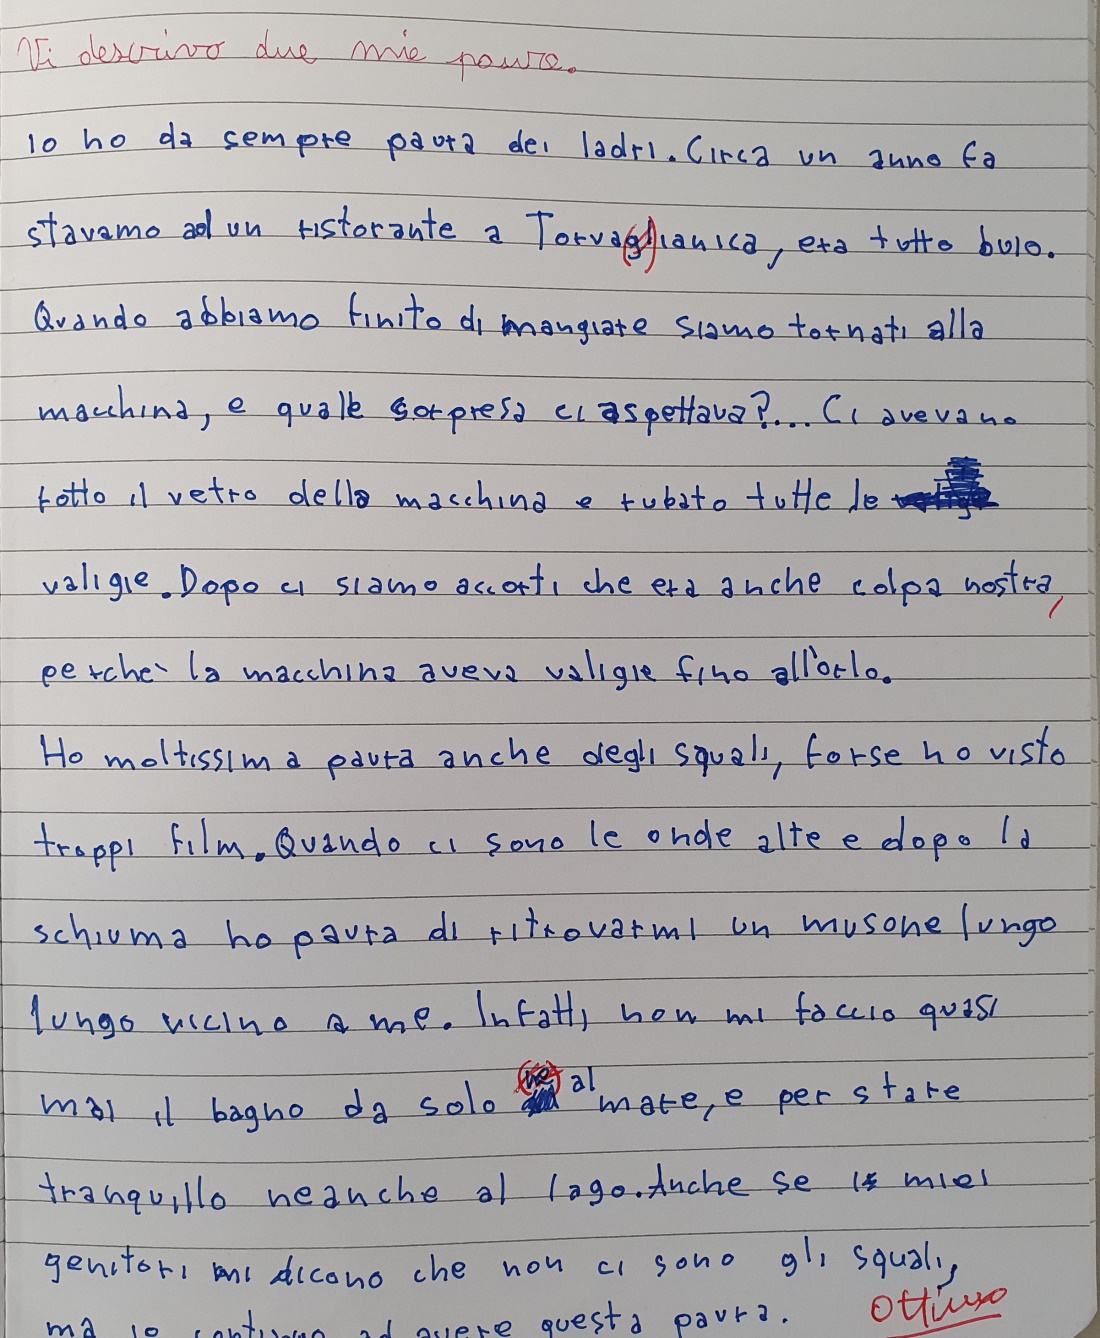 Vi descrivo due mie paure.
Io ho da sempre paura dei ladri. Circa un anno fa
stavamo ad un ristorante a Torva(g)lianica, era tutto buio.
Quando abbiamo finito di mangiare siamo tornati alla
macchina, e quale sorpresa ci aspettava?... Ci avevano
rotto il vetro della macchina e rubato tutte le
valigie. Dopo ci siamo accorti che era anche colpa nostra,
perchè la macchina aveva valigie fino all'orlo.
Ho moltissima paura anche degli squali, forse ho visto
troppi film. Quando ci sono le onde alte e dopo la
schiuma ho paura di ritrovarmi un musone lungo
lungo vicino a me. Infatti non mi faccio quasi
mai il bagno da solo al mare, e per stare
tranquillo neanche al lago. Anche se i miei
genitori mi dicono che non ci sono gli squali,
ma io continuo ad avere questa paura. Ottimo